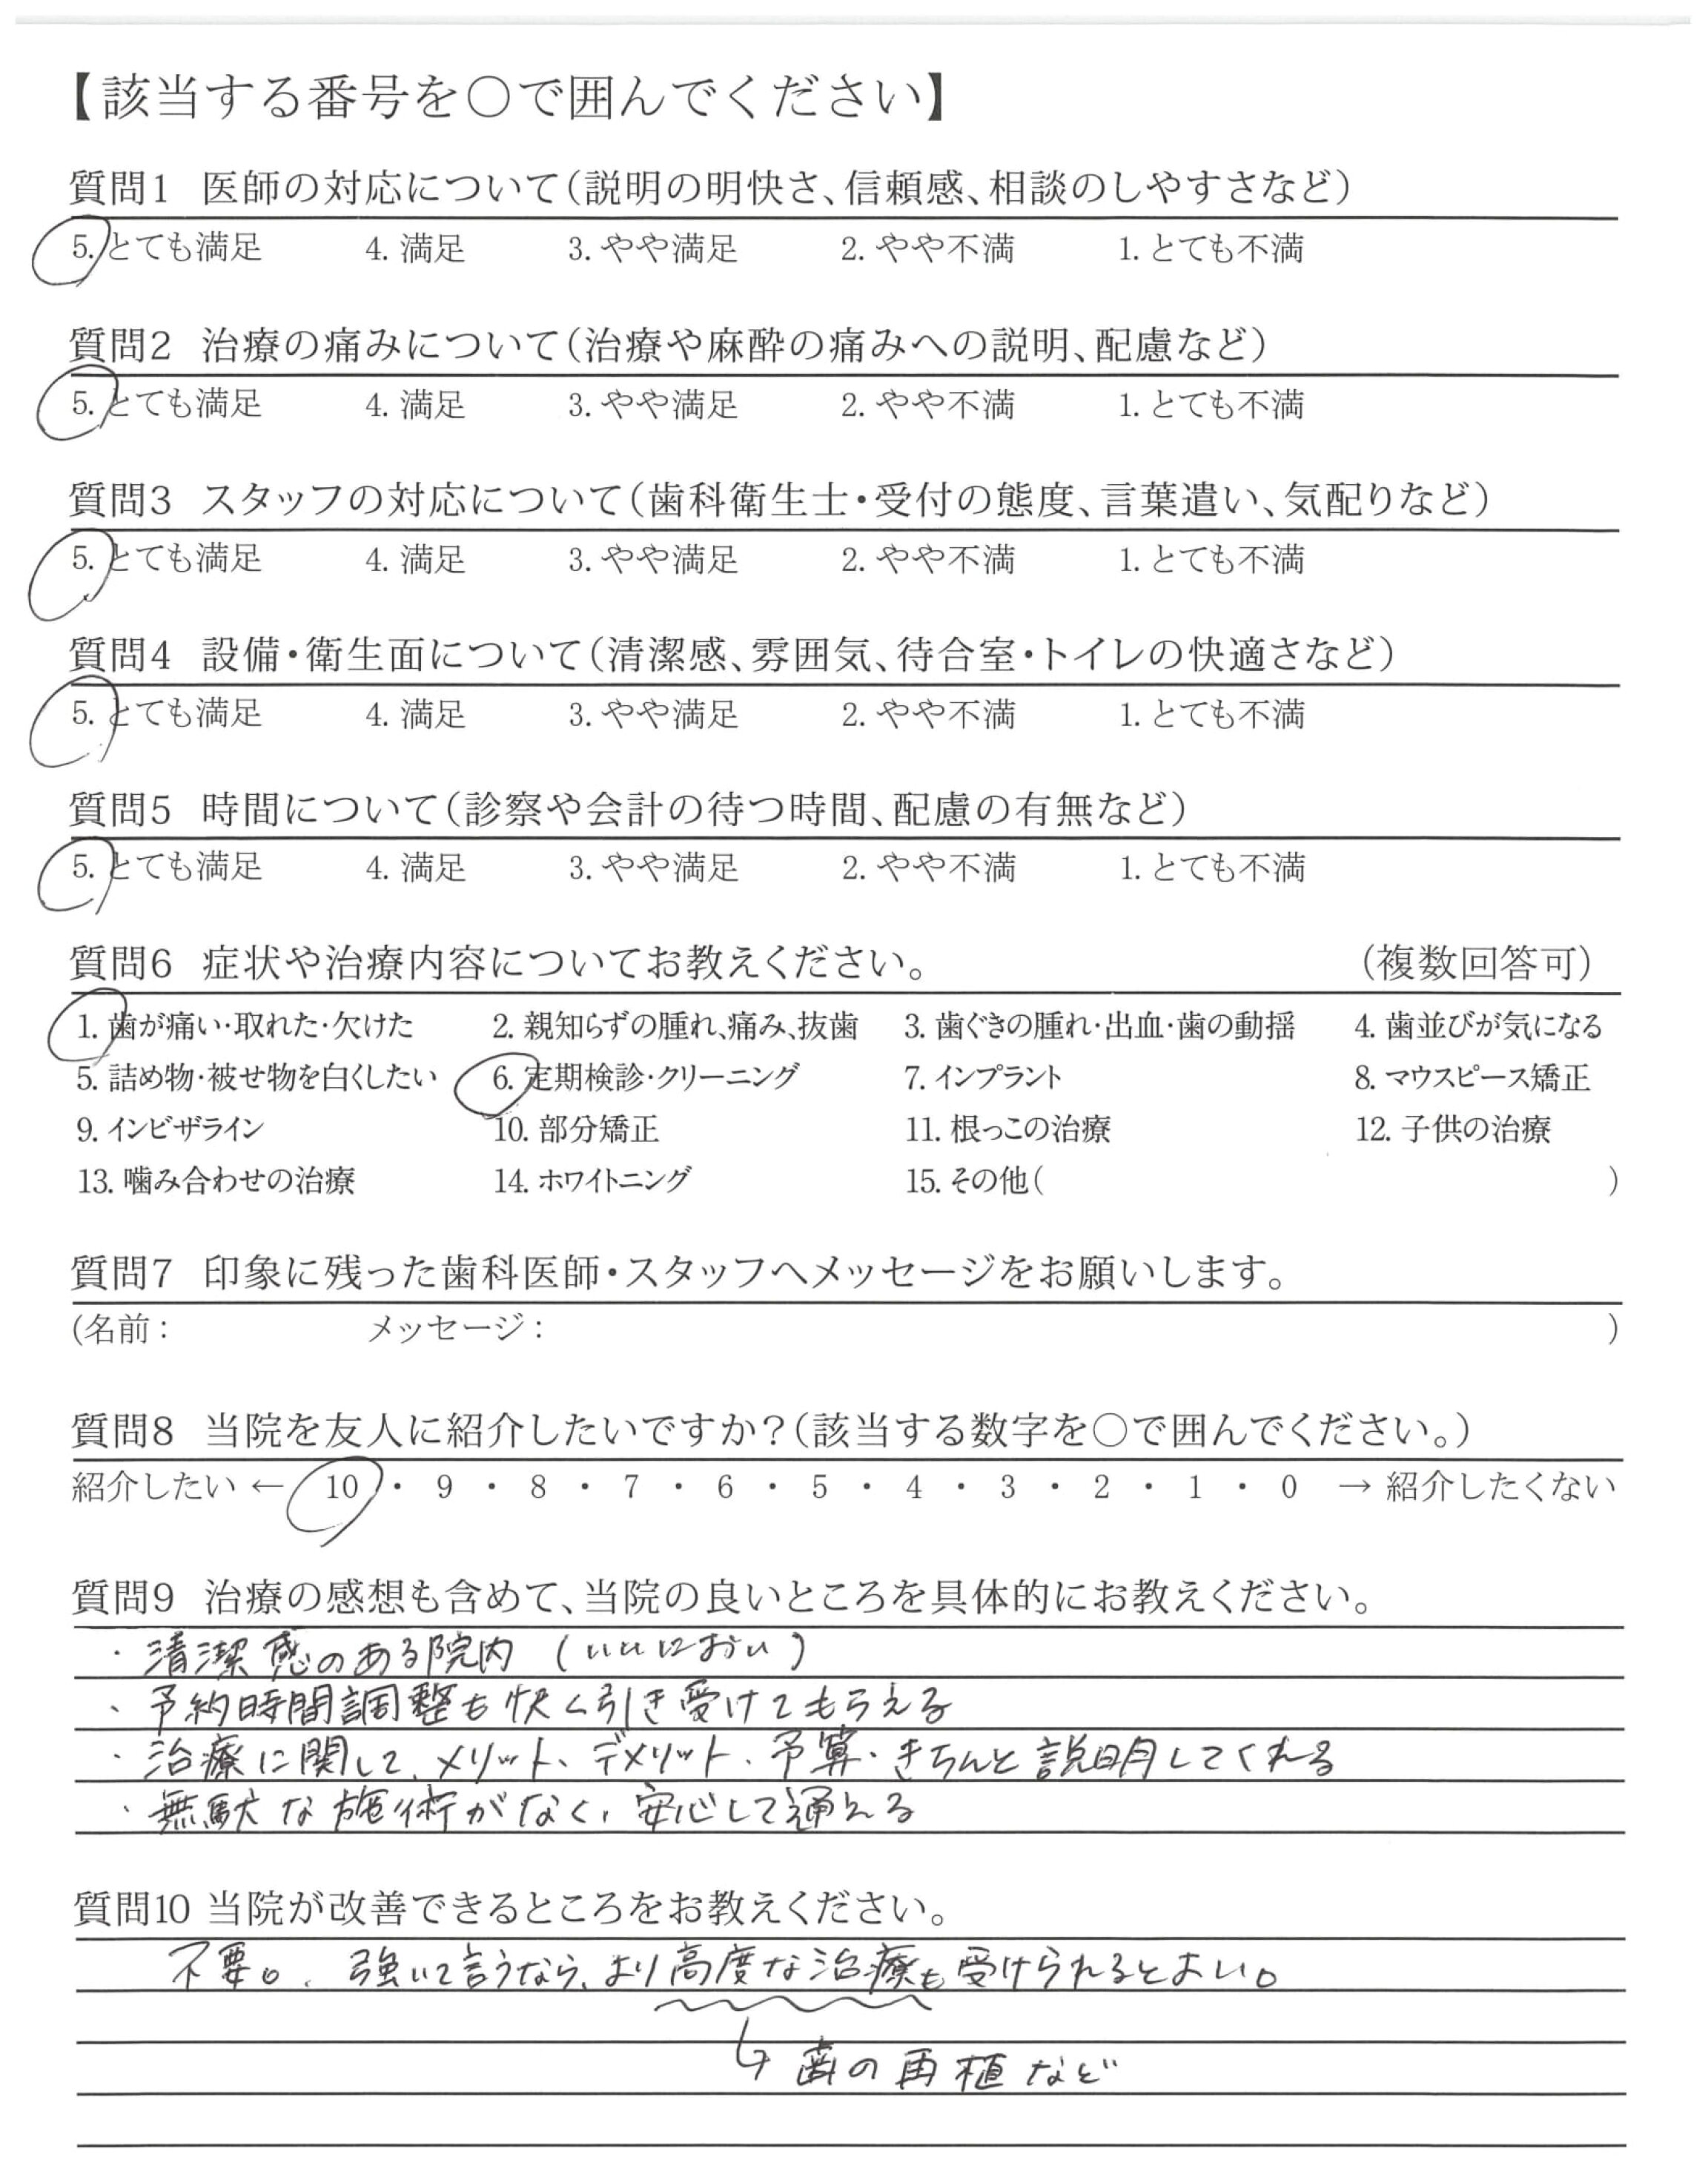 【該当する番号を○で囲んでください】
質問1 医師の対応について(説明の明快さ、信頼感、相談のしやすさなど)
5. とても満足 4. 満足 3. やや満足 2. やや不満 1. とても不満
質問2 治療の痛みについて(治療や麻酔の痛みへの説明、配慮など)
5. とても満足 4. 満足 3. やや満足 2. やや不満 1. とても不満
質問3 スタッフの対応について(歯科衛生士・受付の態度、言葉遣い、気配りなど)
5. とても満足 4. 満足 3. やや満足 2. やや不満 1. とても不満
質問4 設備・衛生面について(清潔感、雰囲気、待合室・トイレの快適さなど)
5. とても満足 4. 満足 3. やや満足 2. やや不満 1. とても不満
質問5 時間について(診察や会計の待つ時間、配慮の有無など)
5. とても満足 4. 満足 3. やや満足 2. やや不満 1. とても不満
質問6 症状や治療内容についてお教えください。 (複数回答可)
1. 歯が痛い・取れた・欠けた 2. 親知らずの腫れ、痛み、抜歯 3. 歯ぐきの腫れ・出血・歯の動揺 4. 歯並びが気になる
5. 詰め物・被せ物を白くしたい 6. 定期検診・クリーニング 7. インプラント 8. マウスピース矯正
9. インビザライン 10. 部分矯正 11. 根っこの治療 12. 子供の治療
13. 噛み合わせの治療 14. ホワイトニング 15. その他( )
質問7 印象に残った歯科医師・スタッフへメッセージをお願いします。
(名前: メッセージ: )
質問8 当院を友人に紹介したいですか?(該当する数字を○で囲んでください。)
紹介したい ← 10 ・ 9 ・ 8 ・ 7 ・ 6 ・ 5 ・ 4 ・ 3 ・ 2 ・ 1 ・ 0 → 紹介したくない
質問9 治療の感想も含めて、当院の良いところを具体的にお教えください。
・清潔感のある院内 (いいにおい)
・予約時間調整も快く引き受けてもらえる
・治療に関して、メリット、デメリット、予算・きちんと説明してくれる
・無駄な施術がなく、安心して通える
質問10 当院が改善できるところをお教えください。
不要。強いて言うなら、より高度な治療も受けられるとよい。
↳ 歯の再植など